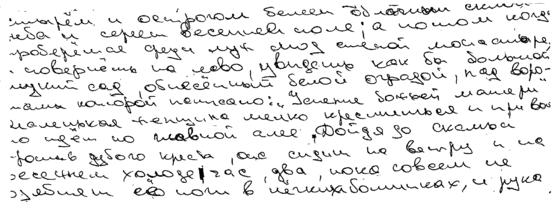 стырём и острогом белеет облачный склон
неба и сереет весеннее поле; а потом когда
проберёшься среди луж под стеной монастыря
и повернёшь на лево, увидишь как бы большой
низкий сад, обнесённый белой оградой, над воро-
тами которой написано: „Успение божьей матери
маленькая женщина мелко крестится и привы
но идёт по главной алее. Дойдя до скамьи
против дубого креста, она сидит на ветру и на
весеннем холоде час, два, пока совсем не
зазябнут её ноги в лёгких ботинках, и рука